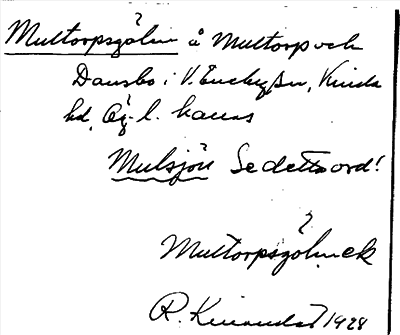 Multorpsgölen å Multorp och
Dansbo i V. Eneby sn, Kinda
hd, Ög. l. kallas
Mulsjön Se detta ord!
?
Multorpsgölen ek
R. 1928